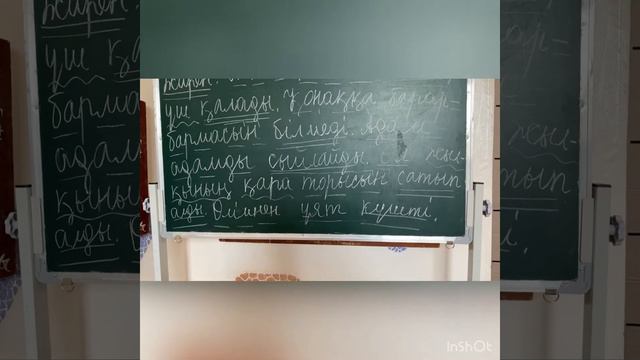 жирен.
үш қалады. Қонаққа барар-
бармасын білмеді. Адам
адамды сыйлайды. Ол жыл-
қының қара торысын сатып
алды. Өлімнен ұят күшті.
InShOt